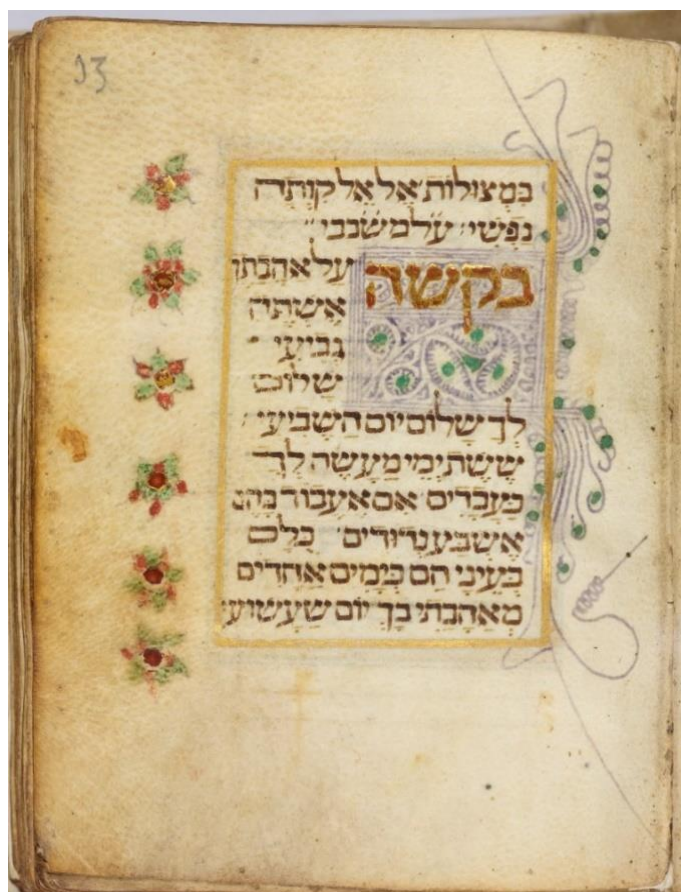 במצולות אל אל קותה
נפשי על משכבי
בקשה על אהבתך
אשתה
גביעי
שלום
לך שלום יום השביעי
ששת ימי מעשה לך
כעבדים אם אעבוד בהם
אשבע נדודים כלם
בעיני הם כימים אחדים
מאהבתי בך יום שעשועי